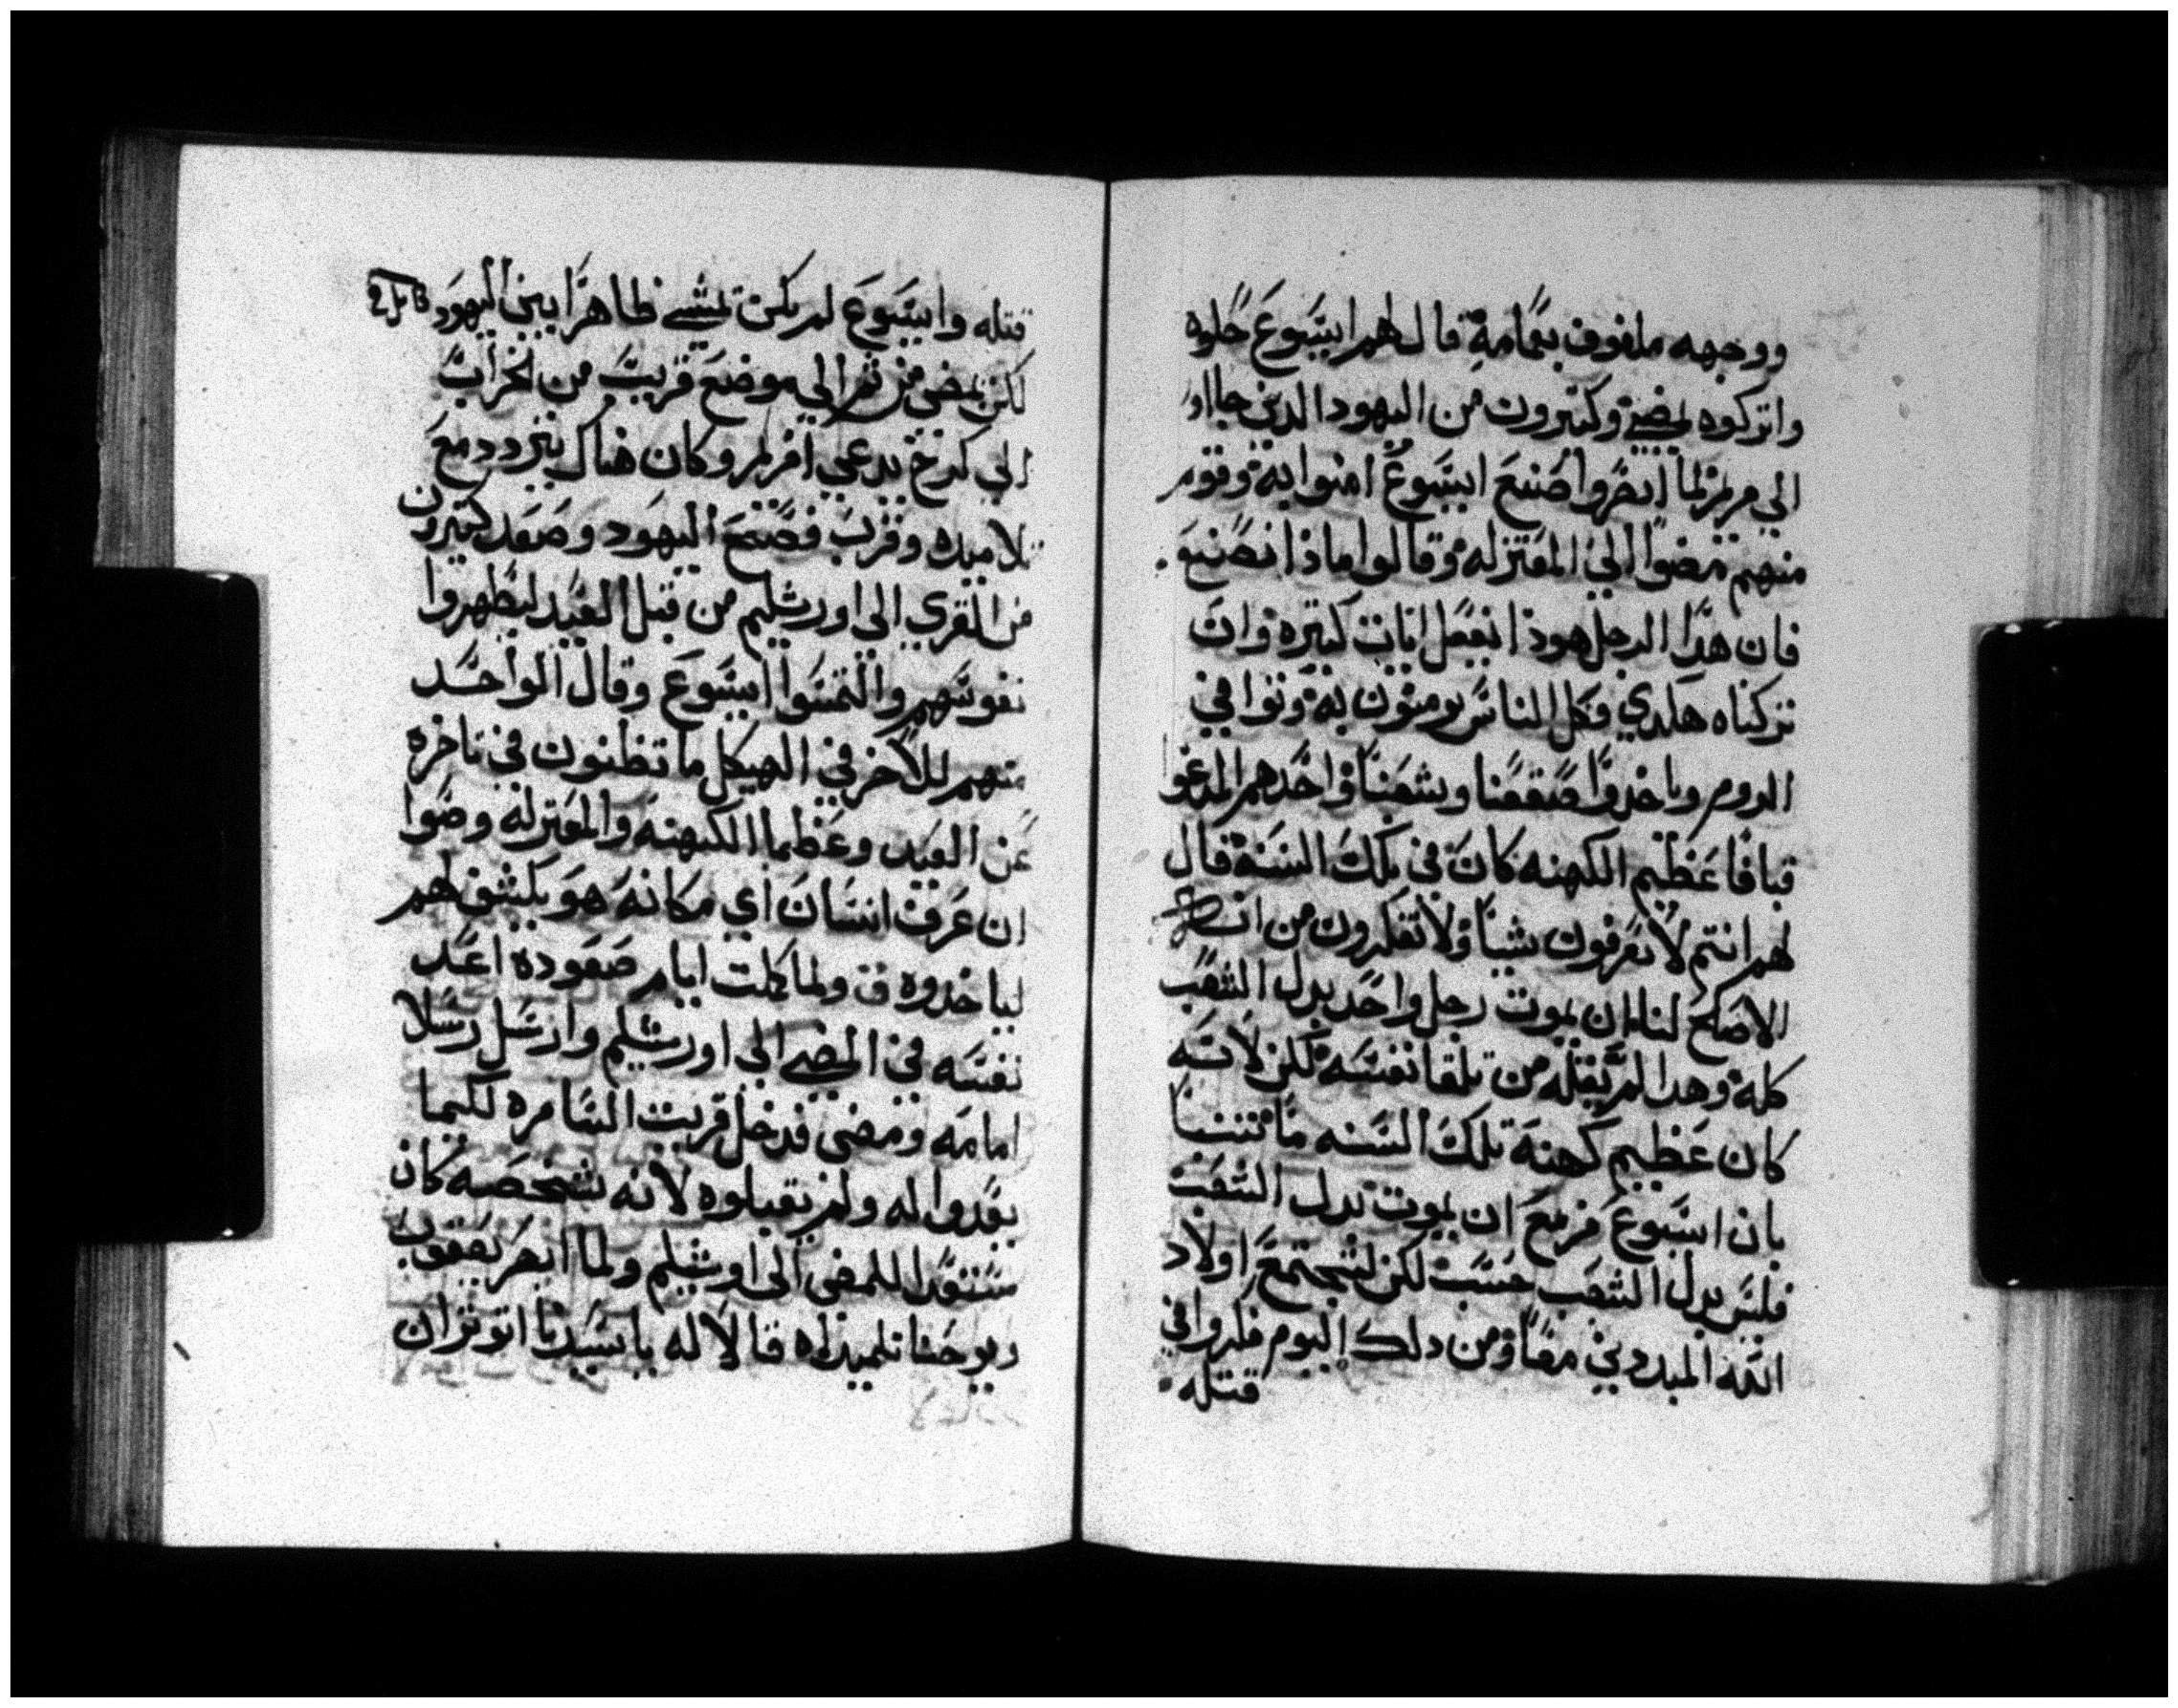 ووجهه ملفوف بعمامة قال لهم ايسوع حلوه
واتركوه يمضي وكتيرون من اليهود الدين جااوا
الي مريم لما ابصروا صنيع ايسوع امنوا به وقوم
منهم مضوا الي المعتزله وقالوا ماذا نصنع
فان هذا الرجل هوذا يفعل ايات كتيره وان
تركناه هكدي فكل الناس يومنون به وتوافي
الروم وياخدوا صقعنا وشعبنا واحدهم المدعو
قيافا عظيم الكهنه كان في تلك السنة قال
لهم انتم لا تعرفون شيا ولا تفكرون من ان
الاصلح لنا ان يموت رجل واحد بدل الشعب
كله وهدا لم يقله من تلقا نفسه لكن لانه
كان عظيم كهنة تلك السنه ما تنبا
بان ايسوع مزمع ان يموت بدل الشعب
فليس بدل الشعب حسب لكن ليجتمع اولاد
الله المبددين معا ومن دلك اليوم فكروا في
قتله
قتله وايسوع لم يكن يمشي ظاهرا بين اليهود
لكن يمضي من تم الي موضع قريب من الخراب
الي كرخ يدعي افريم وكان هناك يتردد مع
تلاميده وقرب فصح اليهود وصعد كتيرون
من القري الي اورشليم من قبل العيد ليطهروا
نفوسهم والتمسوا ايسوع وقال الواحد
منهم للاخر في الهيكل ما تظنون في تاخره
عن العيد وعظما الكهنه والمعتزله وصوا
ان عرف انسان اي مكانه هو يكشف لهم
لياخدوه ق ولما كملت ايام صعوده اعد
نفسه في المضي الي اورشليم وارسل رسلا
امامه ومضي فدخل قريت السامره لكيما
يعدوا له ولم يقبلوه لانه شخصه كان
مستعدا للمضي الي اورشليم ولما ابصر يعقوب
ويوحنا تلميداه قالا له ياسيدنا اتوتر ان